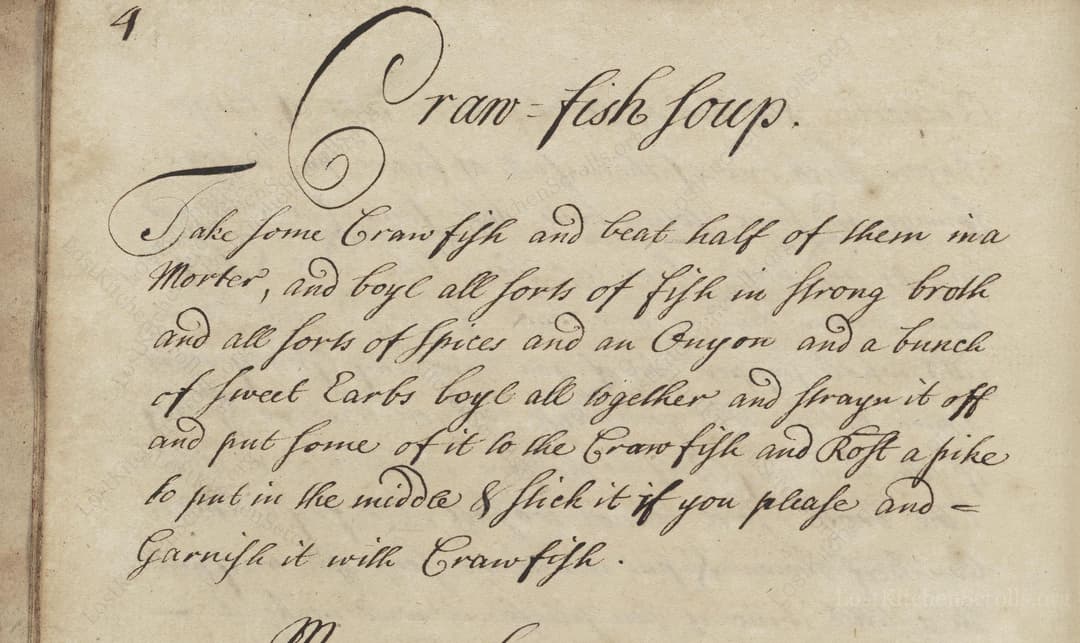 4
Craw-fish soup.
Take some Craw fish and beat half of them in a
Morter, and boyl all sorts of fish in strong broth
and all sorts of spices and an Onyon and a bunch
of sweet Earbs boyl all together and strayn it off
and put some of it to the Craw fish and Rost a pike
to put in the middle & stick it if you please and =
Garnish it with Crawfish.
LostKitchenScrolls.org